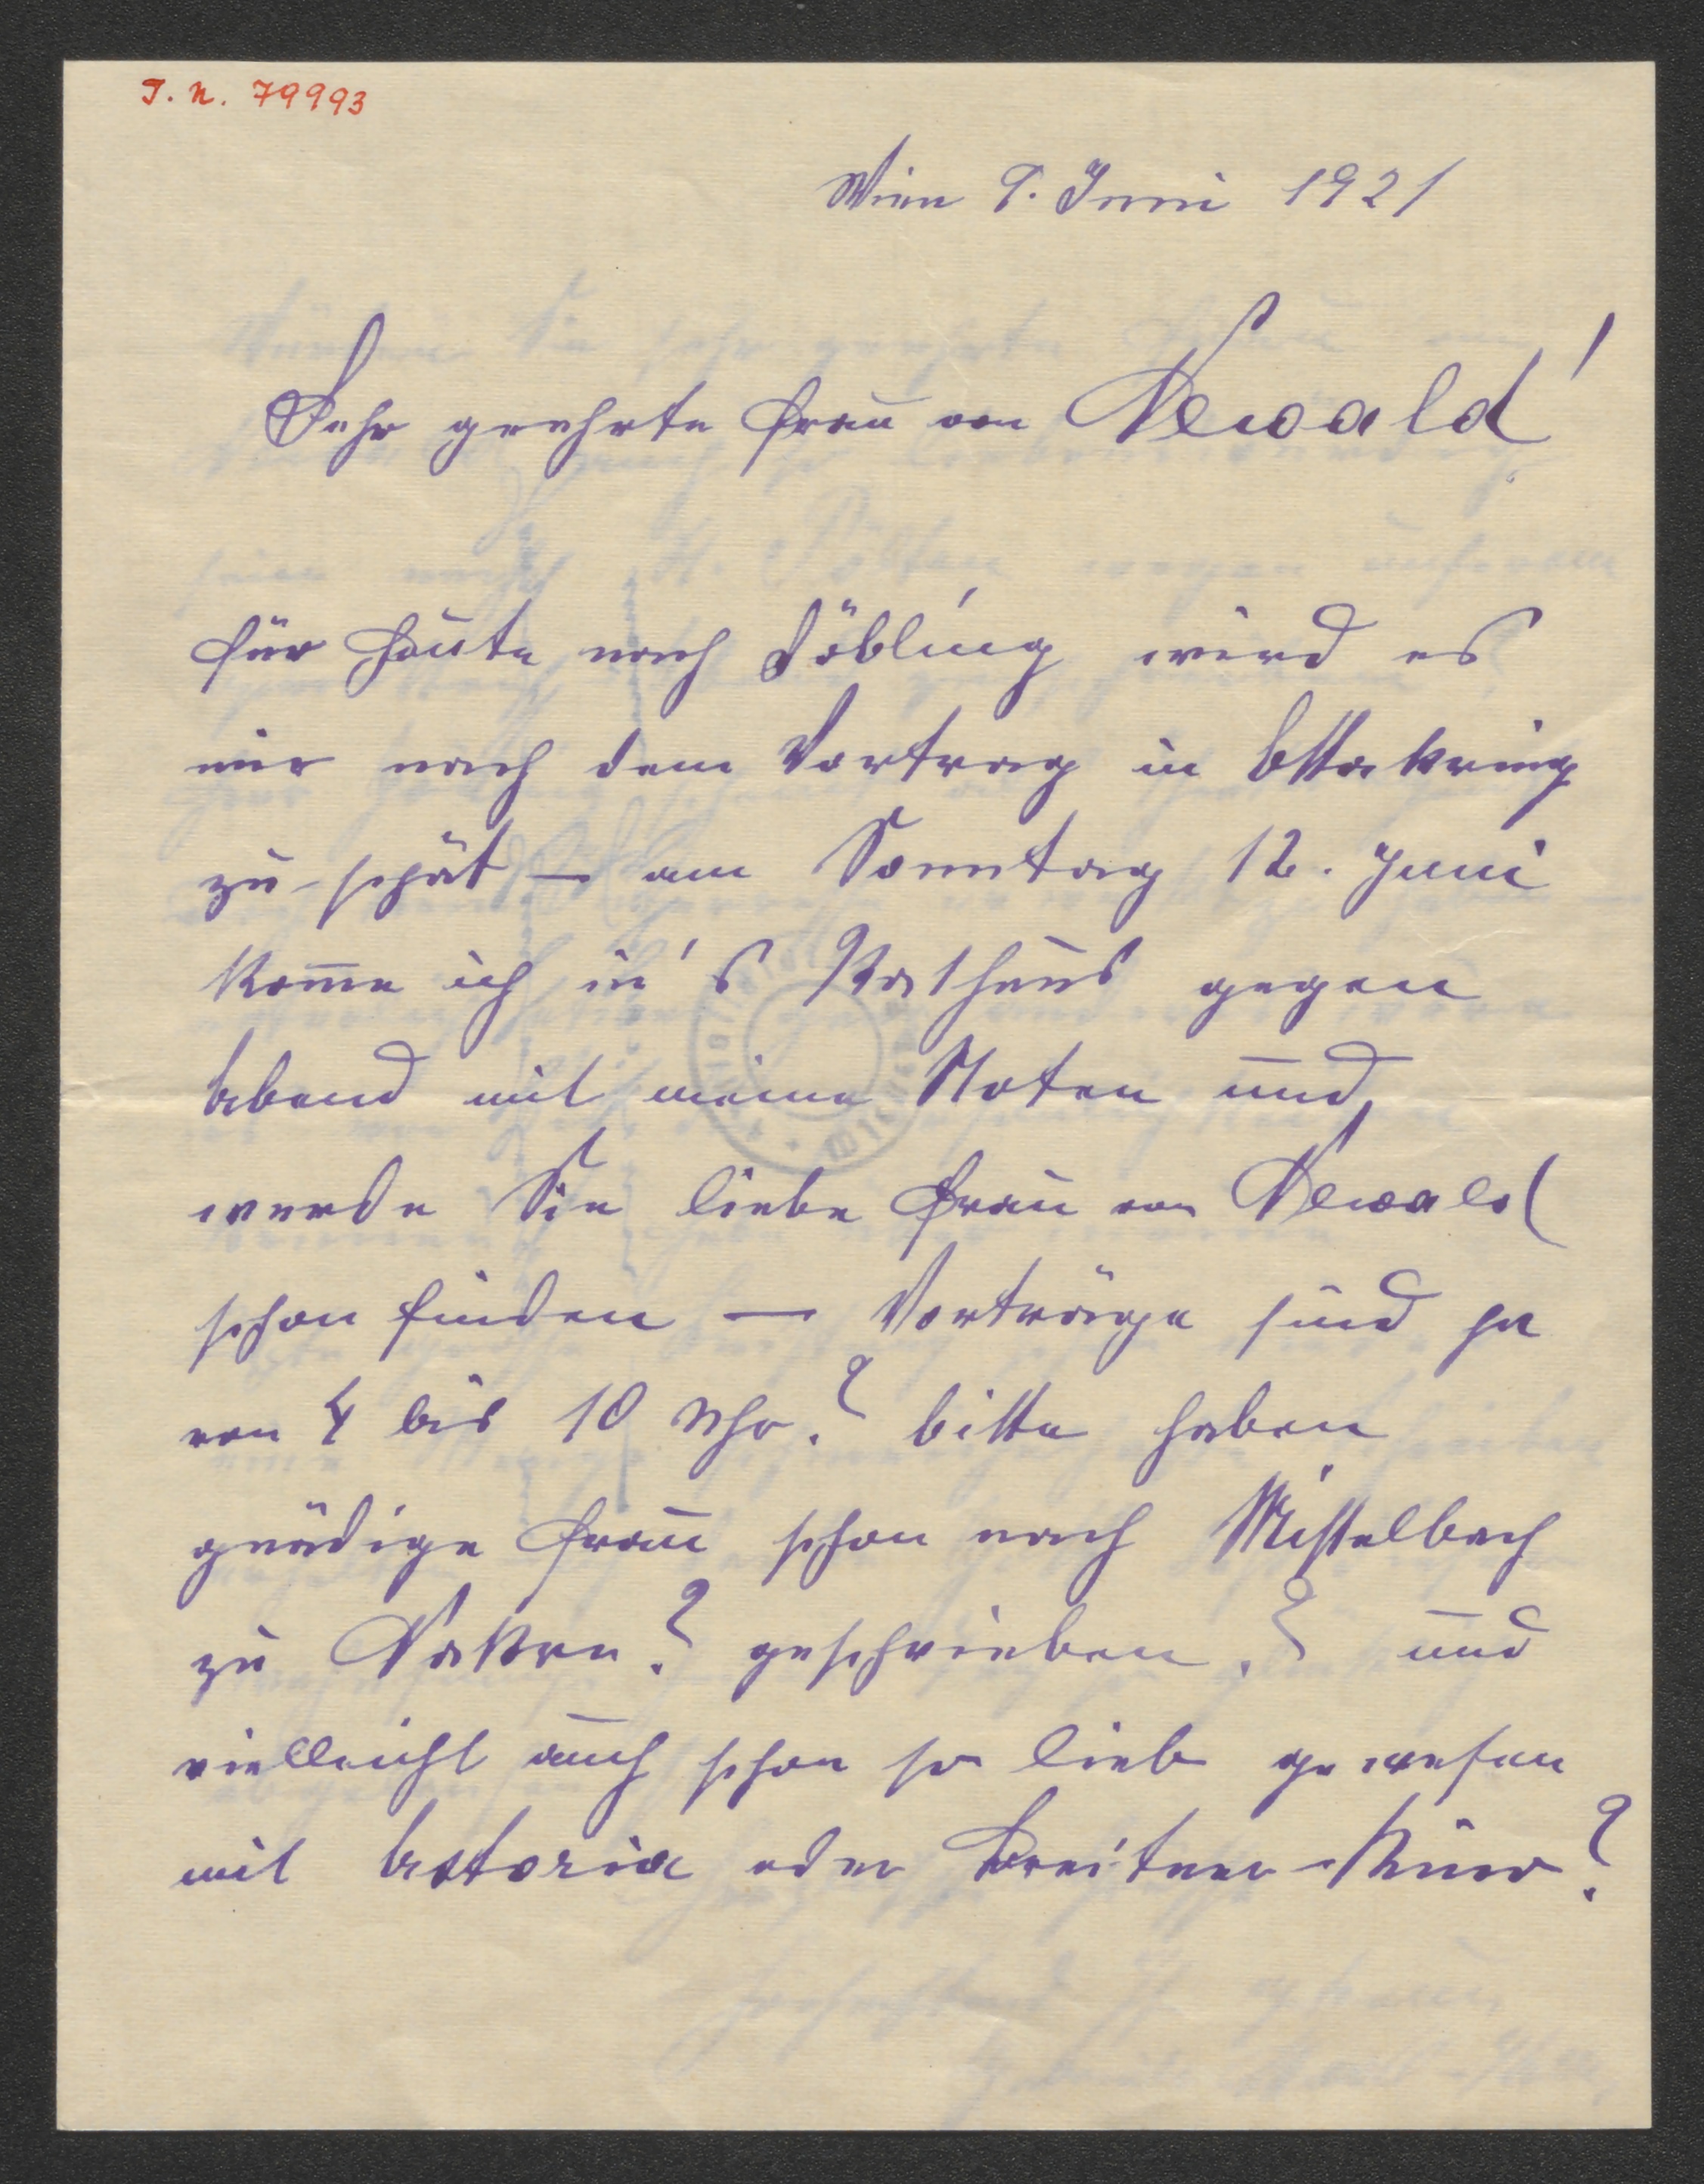 I. N. 79993
Wien 9. Juni 1921
Sehr geehrte Frau von Newald!
für heute nach Döbling wird es
mir nach dem Vortrag in Ottakring
zu spät — am Sonntag 12. Juni
kom̄e ich in's Rathaus gegen
Abend mit meine Noten und
werde Sie liebe Frau von Newald
schon finden — Vorträge sind ja
von 4 bis 10 Uhr? bitte haben
gnädige Frau schon nach Mistelbach
zu geschrieben? und
vielleicht auch schon so lieb gewesen
mit Astoria oder Breitner